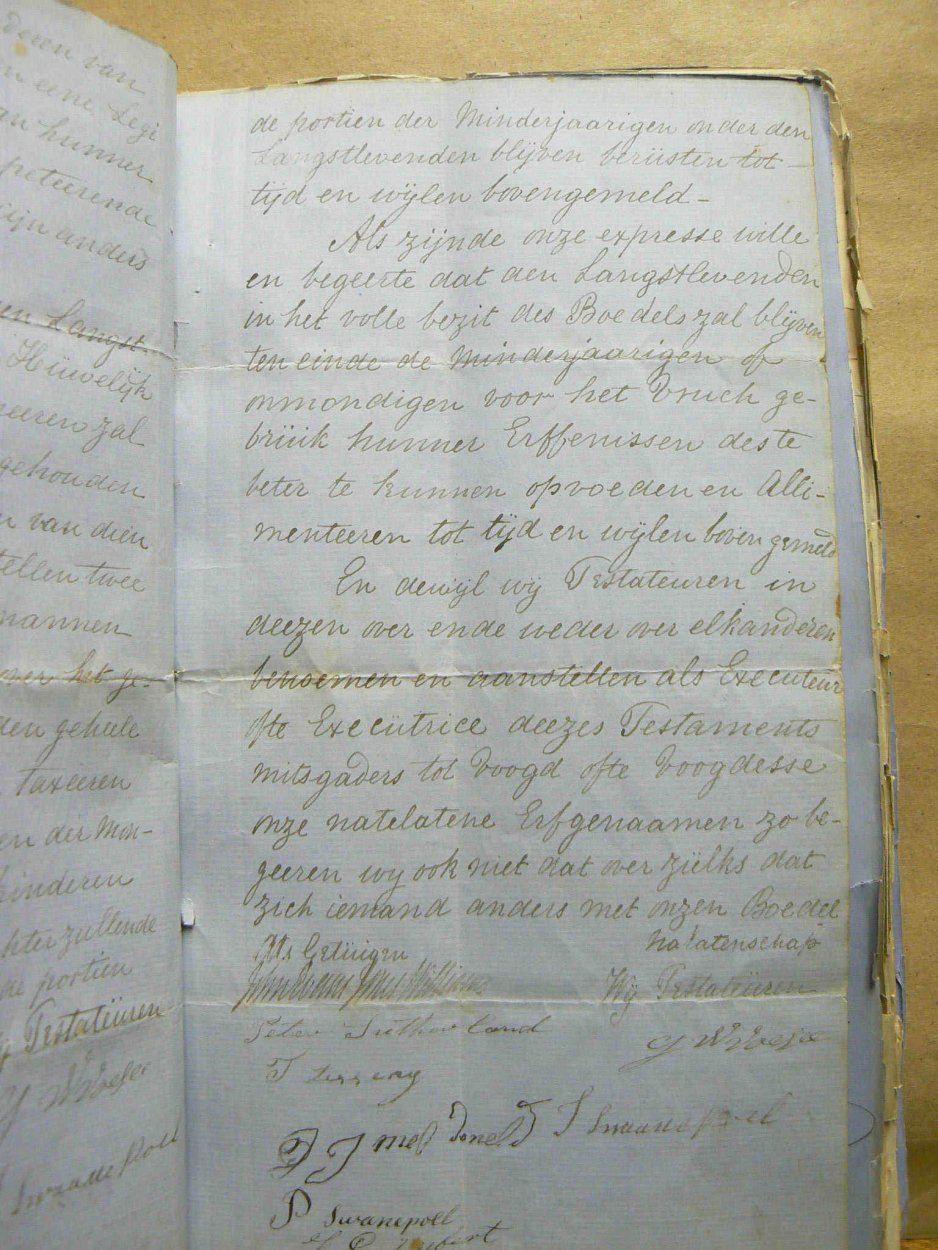 deren van
eene Legi
hunner
peteerende
zijn anders
en Langst-
Hüwelijk
neeren zal
gehouden
van dien
stellen twee
mannen
over het ge-
den geheele
taxeeren
en der Mon-
kinderen
achter zullende
portien
Testateüren
Swanepoel
de portien der Minderjaarigen onder den
Langstlevenden blijven berüsten tot
tijd en wijlen bovengemeld -
Als zijnde onze expresse wille
en begeerte dat den Langstlevenden
in het volle bezit des Boedels zal blijven
ten einde de Minderjaarigen of
onmondigen voor het Vruch ge-
brüik hunner Erffenissen deste
beter te kunnen opvoeden en Alli-
menteeren tot tijd en wijlen boven gemeld
En dewijl wij Testateuren in
deezen over ende weder over elkanderen
benoemen en aanstellen als Executeur
ofte Execütrice deezes Testaments
mitsgaders tot Voogd ofte Voogdesse
onze natelatene Erfgenaamen zo be-
geeren wy ook niet dat over zülks dat
zich iemand anders met onzen Boedel
Als Getüigen
Nalatenschap
Wij Testateüren
Peter Sutherland
P Swanepoel